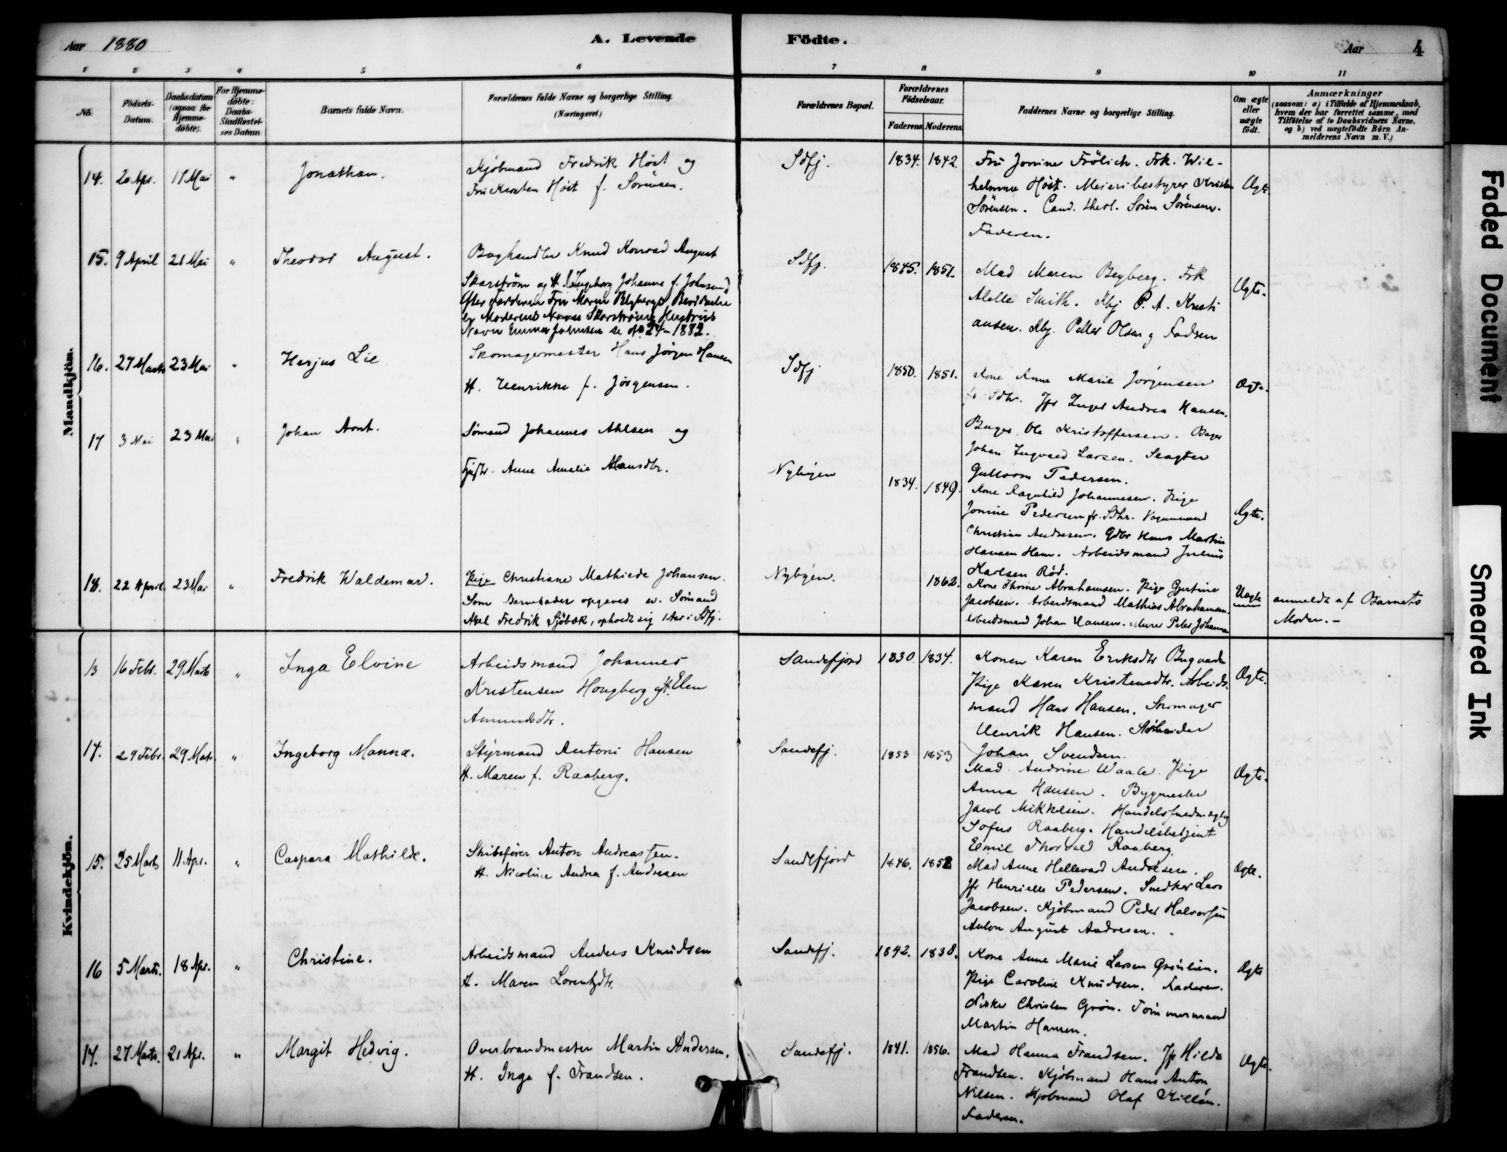 Aar 1880
A. Levende Födte.
Aar 4
1 2 3 4 5 6 7 8 9 10 11
No.
Födsels-Datum.
Daabsdatum (ogsaa for Hjemmedöbte).
For Hjemmedöbte: Daabs-Stadfæstelses Datum
Barnets fulde Navn.
Forældrenes fulde Navne og borgerlige Stilling. (Næringsvei.)
Forældrenes Bopæl.
Forældrenes Födselsaar.
Faderens Moderens
Faddernes Navne og borgerlige Stilling.
Om ægte eller uægte födt.
Anmærkninger
(saasom: a) i Tilfælde af Hjemmedaab, hvem der har forrettet samme, med Tilföielse af to Daabsvidners Navne, og b) ved uægtefödte Börn Anmelderens Navn m. V.)
Mandkjön.
14. 20 Apr. 17 Mai " Jonathan.
Kjöbmand Fredrik Höst og
Fru Kirsten Höst f. Sörensen.
Sdfj. 1834. 1842
Fru Jonine Frölich. Frk. Wil-
helmine Höst. Meieribestyrer Kristen
Sörensen. Cand. theol. Sören Sörensen.
Faderen.
Ægte.
15. 9 April 21 Mai " Theodor August.
Boghandler Knud Konrad August
Skarström og H. Ingeborg Johanne f. Johnsen
Navn Emma Johnsen se No 24 - 1882.
Sdfj. 1845. 1851.
Mad Maren Bryberg. Frk
Smith. Kbj P. A. Kristi
ansen. Kbj. Peller Olsen og Fadren
Ægte.
16. 27 Marts 23 Mai " Harjus Lie
Skomagermester Hans Jörgen Hansen
H. Henrikke f. Jörgensen.
Sdfj. 1850. 1851.
Kone Anne Marie Jörgensen
Jfr Inger Andrea Hansen.
Bager Ole Kristoffersen. Bager
Johan Ingvald Larsen. Slagter
Guttorm Pedersen.
Ægte.
17 3 Mai 23 Mai " Johan Arnt.
Sömand Johannes Ahlsen og
Anne Amalie Hansdtr.
Nybyen 1834. 1849.
Kone Ragnhild Johannesen. Pige
Jonine Pedersen fr. Sdhr. Vognmand
Christian Andresen. Gdbr Hans Martin
Hansen Hem. Arbeidsmand Julius
Karlsen Röd.
Ægte.
18. 22 April 23 Mai " Fredrik Waldemar.
Pige Christiane Mathilde Johansen.
Som Barnefader opgaves ev. Sömand
Axel Fredrik Sjöbæk, opholdt sig i Sdfj.
Nybyen. 1862.
Kone Thorine Abrahamsen. Pige Gjertine
Jacobsen. Arbeidsmand Mathias Abrahamsen.
Arbeidsmand Johan Hansen. Murer Peter Johansen
Uægte
anmeldt af Barnets
Moder. -
Kvindekjön.
13 16 Febr. 29 Marts " Inga Elvine
Arbeidsmand Johannes
Kristensen Hougberg og H. Elen
Amundsdtr.
Sandefjord 1830. 1834.
Konen Karen Eriksdtr
Pige Karen Kristensdtr. Arbeids
mand Hans Hansen. Skomager
Henrik Hansen.
Johan Svendsen.
Ægte.
14. 29 Febr. 29 Marts " Ingeborg Manna.
Styrmand Antoni Hansen
H. Maren f. Raaberg.
Sandefj. 1853 1853
Mad. Andrine Waale. Pige
Anna Hansen. Bygmester
Jacob Mikkelsen.
Sofus Raaberg. Handelsbetjent
Emil Thorvald Raaberg.
Ægte.
15. 25 Marts 11 Apr. " Caspara Mathilde.
Skibsförer Anton Andreassen.
H. Nicoline Andrea f. Andresen
Sandefjord 1846. 1852
Mad Anne Hellevard Andresen.
Jfr Henriette Pedersen. Snedker Lars
Jacobsen. Kjöbmand Peder Halvorsen
Anton August Andresen.
Ægte.
16 5 Marts. 18 Apr. " Christine.
Arbeidsmand Anders Knudsen
H. Maren Lorentzdtr.
Sandefj. 1842. 1838.
Kone Anne Marie Larsen Grönlien.
Pige Caroline Knudsen. Faderen.
Fisker Christen Grön. Tömmermand
Martin Hansen.
Ægte
17. 27 Marts. 21 Apr. " Margit Hedvig.
Overbrandmester Martin Andersen.
H. Inga f. Frandsen.
Sandefj. 1841. 1856.
Mad Hanna Frandsen. Jfr Hilda
Frandsen. Kjöbmand Hans Anton
Nilsen. Kjöbmand Olaf Killén.
Faderen.
Ægte.
Faded Document
Smeared Ink